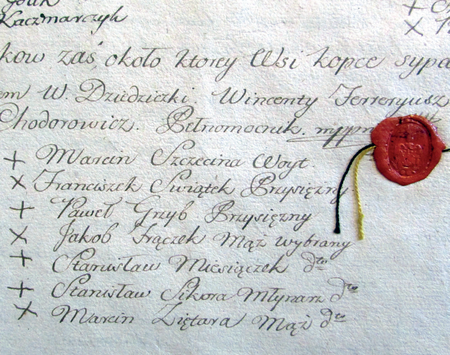 Kaczmarczyk
ków zaś około ktorey Wsi kopce sypa
em W. Dziedziczki. Wincenty Ferreryusz
Chodorowicz. Pełnomocnik.
+ Marcin Szczecina Woyt.
× Franciszek Swiątek Przysięzny
+ Paweł Grzyb Przysięzny
× Jakob Frączek Mąż wybrany
+ Stanisław Miesiączek dto
+ Stanisław Sikora Młynarz dto
× Marcin Ziętara Mąż dto